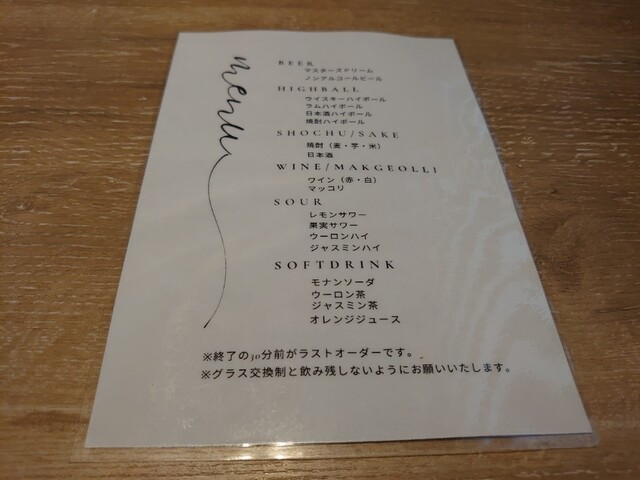 menu
BEER
マスターズドリーム
ノンアルコールビール
HIGHBALL
ウイスキーハイボール
ラムハイボール
日本酒ハイボール
焼酎ハイボール
SHOCHU/SAKE
焼酎（麦・芋・米）
日本酒
WINE/MAKGEOLLI
ワイン（赤・白）
マッコリ
SOUR
レモンサワー
果実サワー
ウーロンハイ
ジャスミンハイ
SOFTDRINK
モナンソーダ
ウーロン茶
ジャスミン茶
オレンジジュース
※終了の30分前がラストオーダーです。
※グラス交換制と飲み残しないようにお願いいたします。